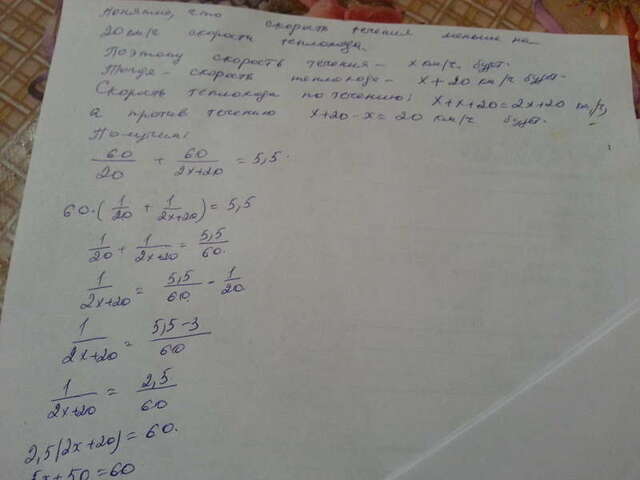 Понятно, что скорость течения меньше на
20 км/ч скорости теплохода.
Поэтому скорость течения - x км/ч. будет.
Тогда - скорость теплохода - x + 20 км/ч будет.
Скорость теплохода по течению: x+x+20=2x+20 км/ч,
а против течению x+20-x=20 км/ч будет.
Получим:
60/20 + 60/2x+20 = 5,5.
60·(1/20 + 1/2x+20) = 5,5
1/20 + 1/2x+20 = 5,5/60.
1/2x+20 = 5,5/60. - 1/20.
1/2x+20 = 5,5-3/60
1/2x+20 = 2,5/60
2,5(2x+20)=60.
5x+50=60